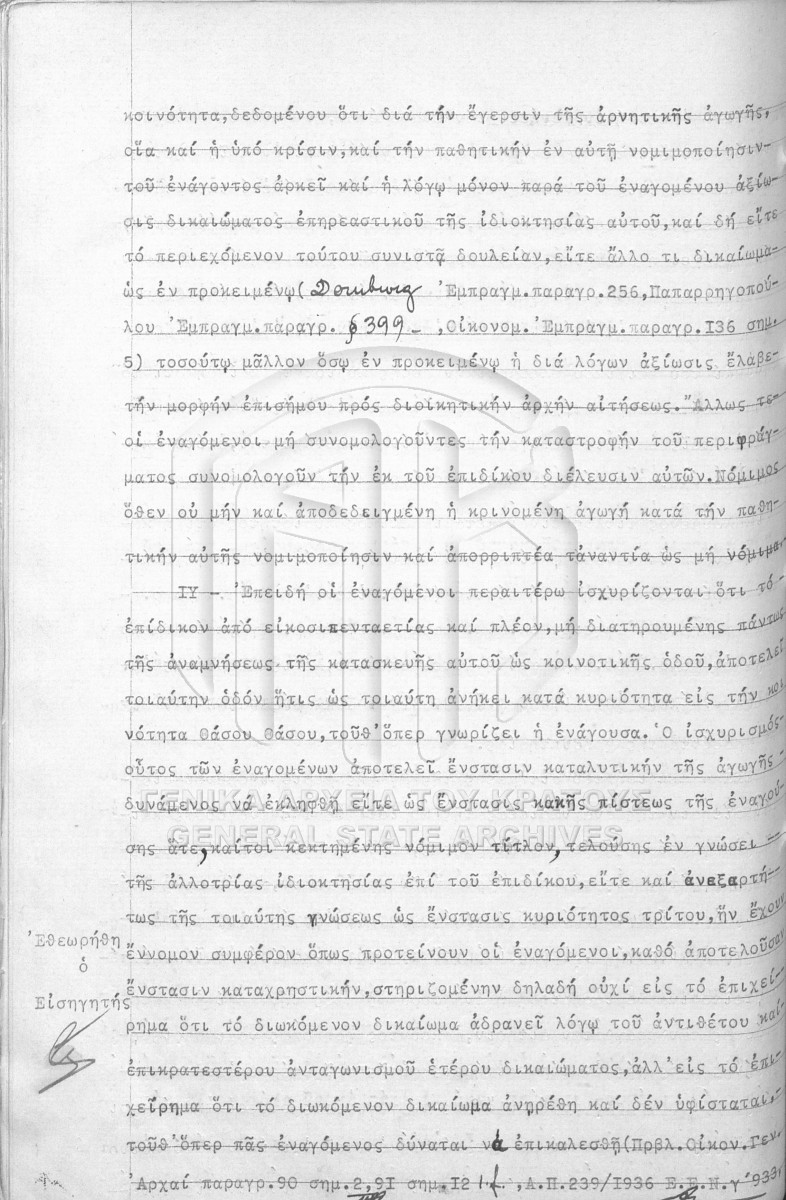 κοινότητα,δεδομένου ὅτι διά τήν ἔγερσιν τῆς ἀρνητικῆς ἀγωγῆς,
οἵα καί ἡ ὑπό κρίσιν,καί τήν παθητικήν ἐν αὐτῇ νομιμοποίησιν-
τοῦ ἐνάγοντος ἀρκεῖ καί ἡ λόγῳ μόνον παρά τοῦ ἐναγομένου ἀξίω-
σις δικαιώματος ἐπηρεαστικοῦ τῆς ἰδιοκτησίας αὐτοῦ,καί δή εἴτε
τό περιεχόμενον τούτου συνιστᾷ δουλείαν,εἴτε ἄλλο τι δικαίωμα-
ὡς ἐν προκειμένῳ( Dernburg Ἐμπραγμ.παραγρ.256,Παπαρρηγοπού-
λου Ἐμπραγμ.παραγρ. §399- ,Οἰκονομ.Ἐμπραγμ.παραγρ.I36 σημ.
5) τοσούτῳ μᾶλλον ὅσῳ ἐν προκειμένῳ ἡ διά λόγων ἀξίωσις ἔλαβε-
τήν μορφήν ἐπισήμου πρός διοικητικήν ἀρχήν αἰτήσεως.Ἄλλως τε-
οἱ ἐναγόμενοι μή συνομολογοῦντες τήν καταστροφήν τοῦ περιφράγ-
ματος συνομολογοῦν τήν ἐκ τοῦ ἐπιδίκου διέλευσιν αὐτῶν.Νόμιμος
ὅθεν οὐ μήν καί ἀποδεδειγμένη ἡ κρινομένη ἀγωγή κατά τήν παθη-
τικήν αὐτῆς νομιμοποίησιν καί ἀπορριπτέα τἀναντία ὡς μή νόμιμα.
IY - Ἐπειδή οἱ ἐναγόμενοι περαιτέρω ἰσχυρίζονται ὅτι τό-
ἐπίδικον ἀπό εἰκοσιπενταετίας καί πλέον,μή διατηρουμένης πάντως
τῆς ἀναμνήσεως τῆς κατασκευῆς αὐτοῦ ὡς κοινοτικῆς ὁδοῦ,ἀποτελεῖ
τοιαύτην ὁδόν ἥτις ὡς τοιαύτη ἀνήκει κατά κυριότητα εἰς τήν κοι
νότητα Θάσου Θάσου,τοῦθ'ὅπερ γνωρίζει ἡ ἐνάγουσα. Ὁ ἰσχυρισμός-
οὗτος τῶν ἐναγομένων ἀποτελεῖ ἔνστασιν καταλυτικήν τῆς ἀγωγῆς-
δυνάμενος νά ἐκληφθῇ εἴτε ὡς ἔνστασις κακῆς πίστεως τῆς ἐναγού-
σης ἅτε,καίτοι κεκτημένης νόμιμον τίτλον,τελούσης ἐν γνώσει -
τῆς ἀλλοτρίας ἰδιοκτησίας ἐπί τοῦ ἐπιδίκου,εἴτε καί ἀνεξαρτή-
τως τῆς τοιαύτης γνώσεως ὡς ἔνστασις κυριότητος τρίτου,ἥν ἔχουν
ἔννομον συμφέρον ὅπως προτείνουν οἱ ἐναγόμενοι,καθό ἀποτελοῦσαν
ἔνστασιν καταχρηστικήν,στηριζομένην δηλαδή οὐχί εἰς τό ἐπιχεί-
ρημα ὅτι τό διωκόμενον δικαίωμα ἀδρανεῖ λόγῳ τοῦ ἀντιθέτου καί-
ἐπικρατεστέρου ἀνταγωνισμοῦ ἑτέρου δικαιώματος,ἀλλ'εἰς τό ἐπι-
χείρημα ὅτι τό διωκόμενον δικαίωμα ἀνῃρέθη καί δέν ὑφίσταται,-
τοῦθ'ὅπερ πᾶς ἐναγόμενος δύναται νά ἐπικαλεσθῇ(Πρβλ.Οἰκον.Γεν.
Ἀρχαί παραγρ.90 σημ.2,9I σημ.I2 ,Α.Π.239/I936 Ε.Ε.Ν.γ'933
Ἐθεωρήθη
ὁ
Εἰσηγητής
ΓΕΝΙΚΑ ΑΡΧΕΙΑ ΤΟΥ ΚΡΑΤΟΥΣ
GENERAL STATE ARCHIVES